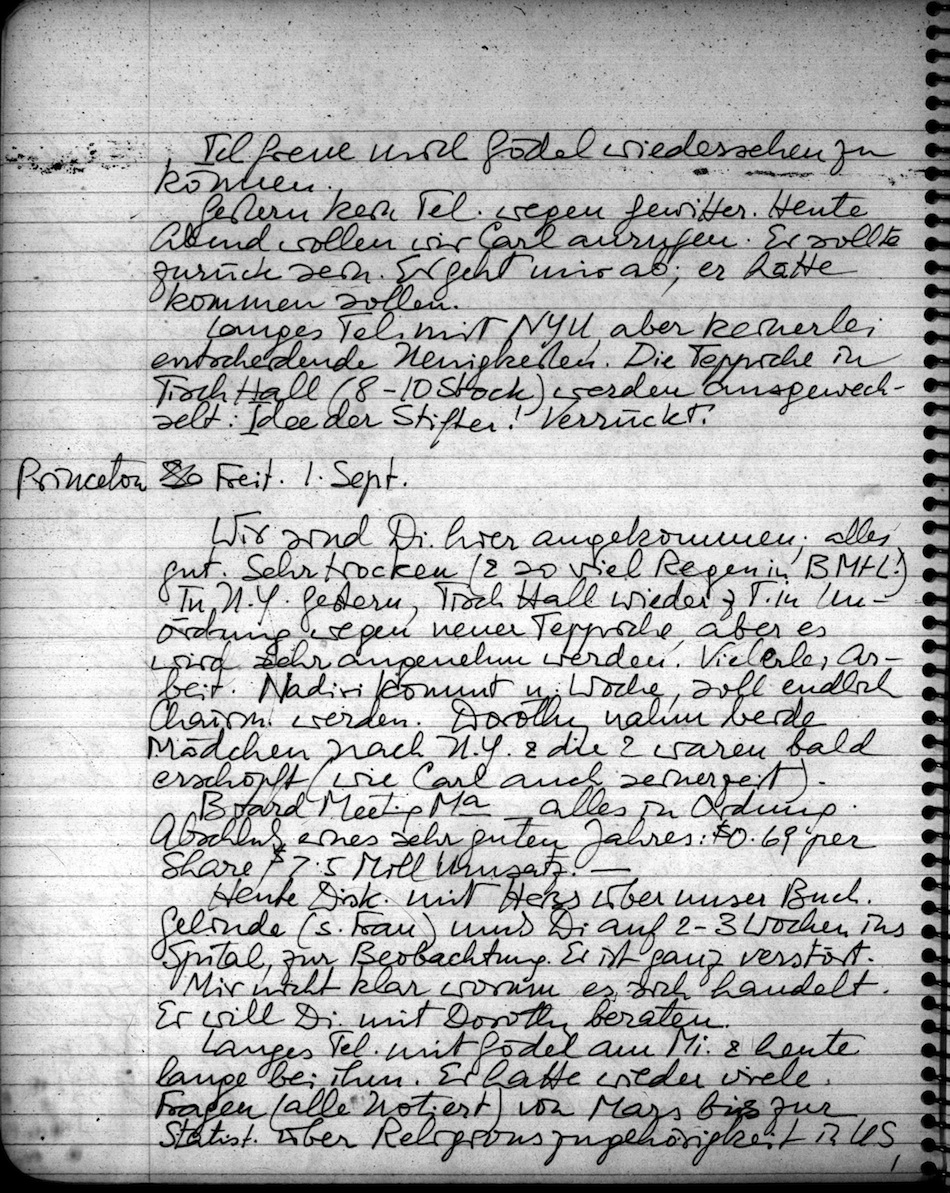 Ich freue mich Gödel wiedersehen zu
können.
Gestern kein Tel. wegen Gewitter. Heute
Abend wollen wir Carl anrufen. Er sollte
zurück sein. Er geht mir ab; er hätte
kommen sollen.
Langes Tel. mit NYU, aber keinerlei
entscheidende Neuigkeiten. Die Teppiche in
Tisch Hall (8-10 Stock) werden ausgewech-
selt. Idee der Stifter! Verrückt!
Princeton Freit. 1. Sept.
Wir sind Di. hier angekommen; alles
gut. Sehr trocken (& so viel Regen in BMHL!)
In N.Y. gestern, Tisch Hall wieder z.T. in Un-
ordnung wegen neuer Teppiche, aber es
wird sehr angenehm werden. Vielerlei Ar-
beit. Nadiri kommt n. Woche, soll endlich
Chairm. werden. Dorothy nahm beide
Mädchen nach N.Y. & die 2 waren bald
erschöpft (wie Carl auch seinerzeit).
Board Meeting Ma — alles in Ordnung.
Abschluß eines sehr guten Jahres: $0.69 per
Share, $7.5 Mill Umsatz. —
Heute Disk. mit Heks über unser Buch.
Gelinde (s. Frau) muss Di auf 2-3 Wochen ins
Spital, zur Beobachtung. Er ist ganz verstört.
Mir nicht klar worum es sich handelt.
Er will Di. mit Dorothy beraten.
Langes Tel. mit Gödel am Mi. & heute
lange bei ihm. Er hatte wieder viele
Fragen (alle notiert) von Mars bis zur
Statist. über Religionszugehörigkeit in US
1